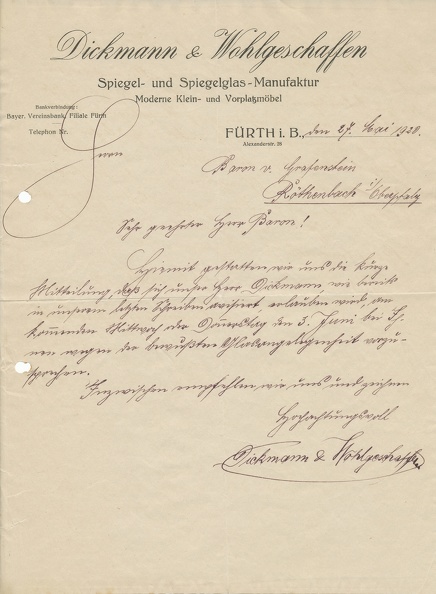 Dickmann & Wohlgeschaffen
Spiegel- und Spiegelglas-Manufaktur
Moderne Klein- und Vorplatzmöbel
Bankverbindung:
Bayer. Vereinsbank, Filiale Fürth
Telephon Nr.
FÜRTH i. B., den 27. Mai 1920.
Alexanderstr. 28
Herrn
Baron v. Grafenstein
Röthenbach i/ Oberpfalz
Sehr geehrter Herr Baron!
Hiermit gestatten wir uns die kurze
Mitteilung, daß sich unser Herr Dickmann, wie bereits
in unserem letzten Schreiben avisiert, erlauben wird, am
kommenden Mittwoch oder Donnerstag den 3. Juni bei Ih-
nen wegen der bewußten Glasangelegenheit vorzu-
sprechen.
Inzwischen empfehlen wir uns und zeichnen
Hochachtungsvoll
Dickmann & Wohlgeschaffen